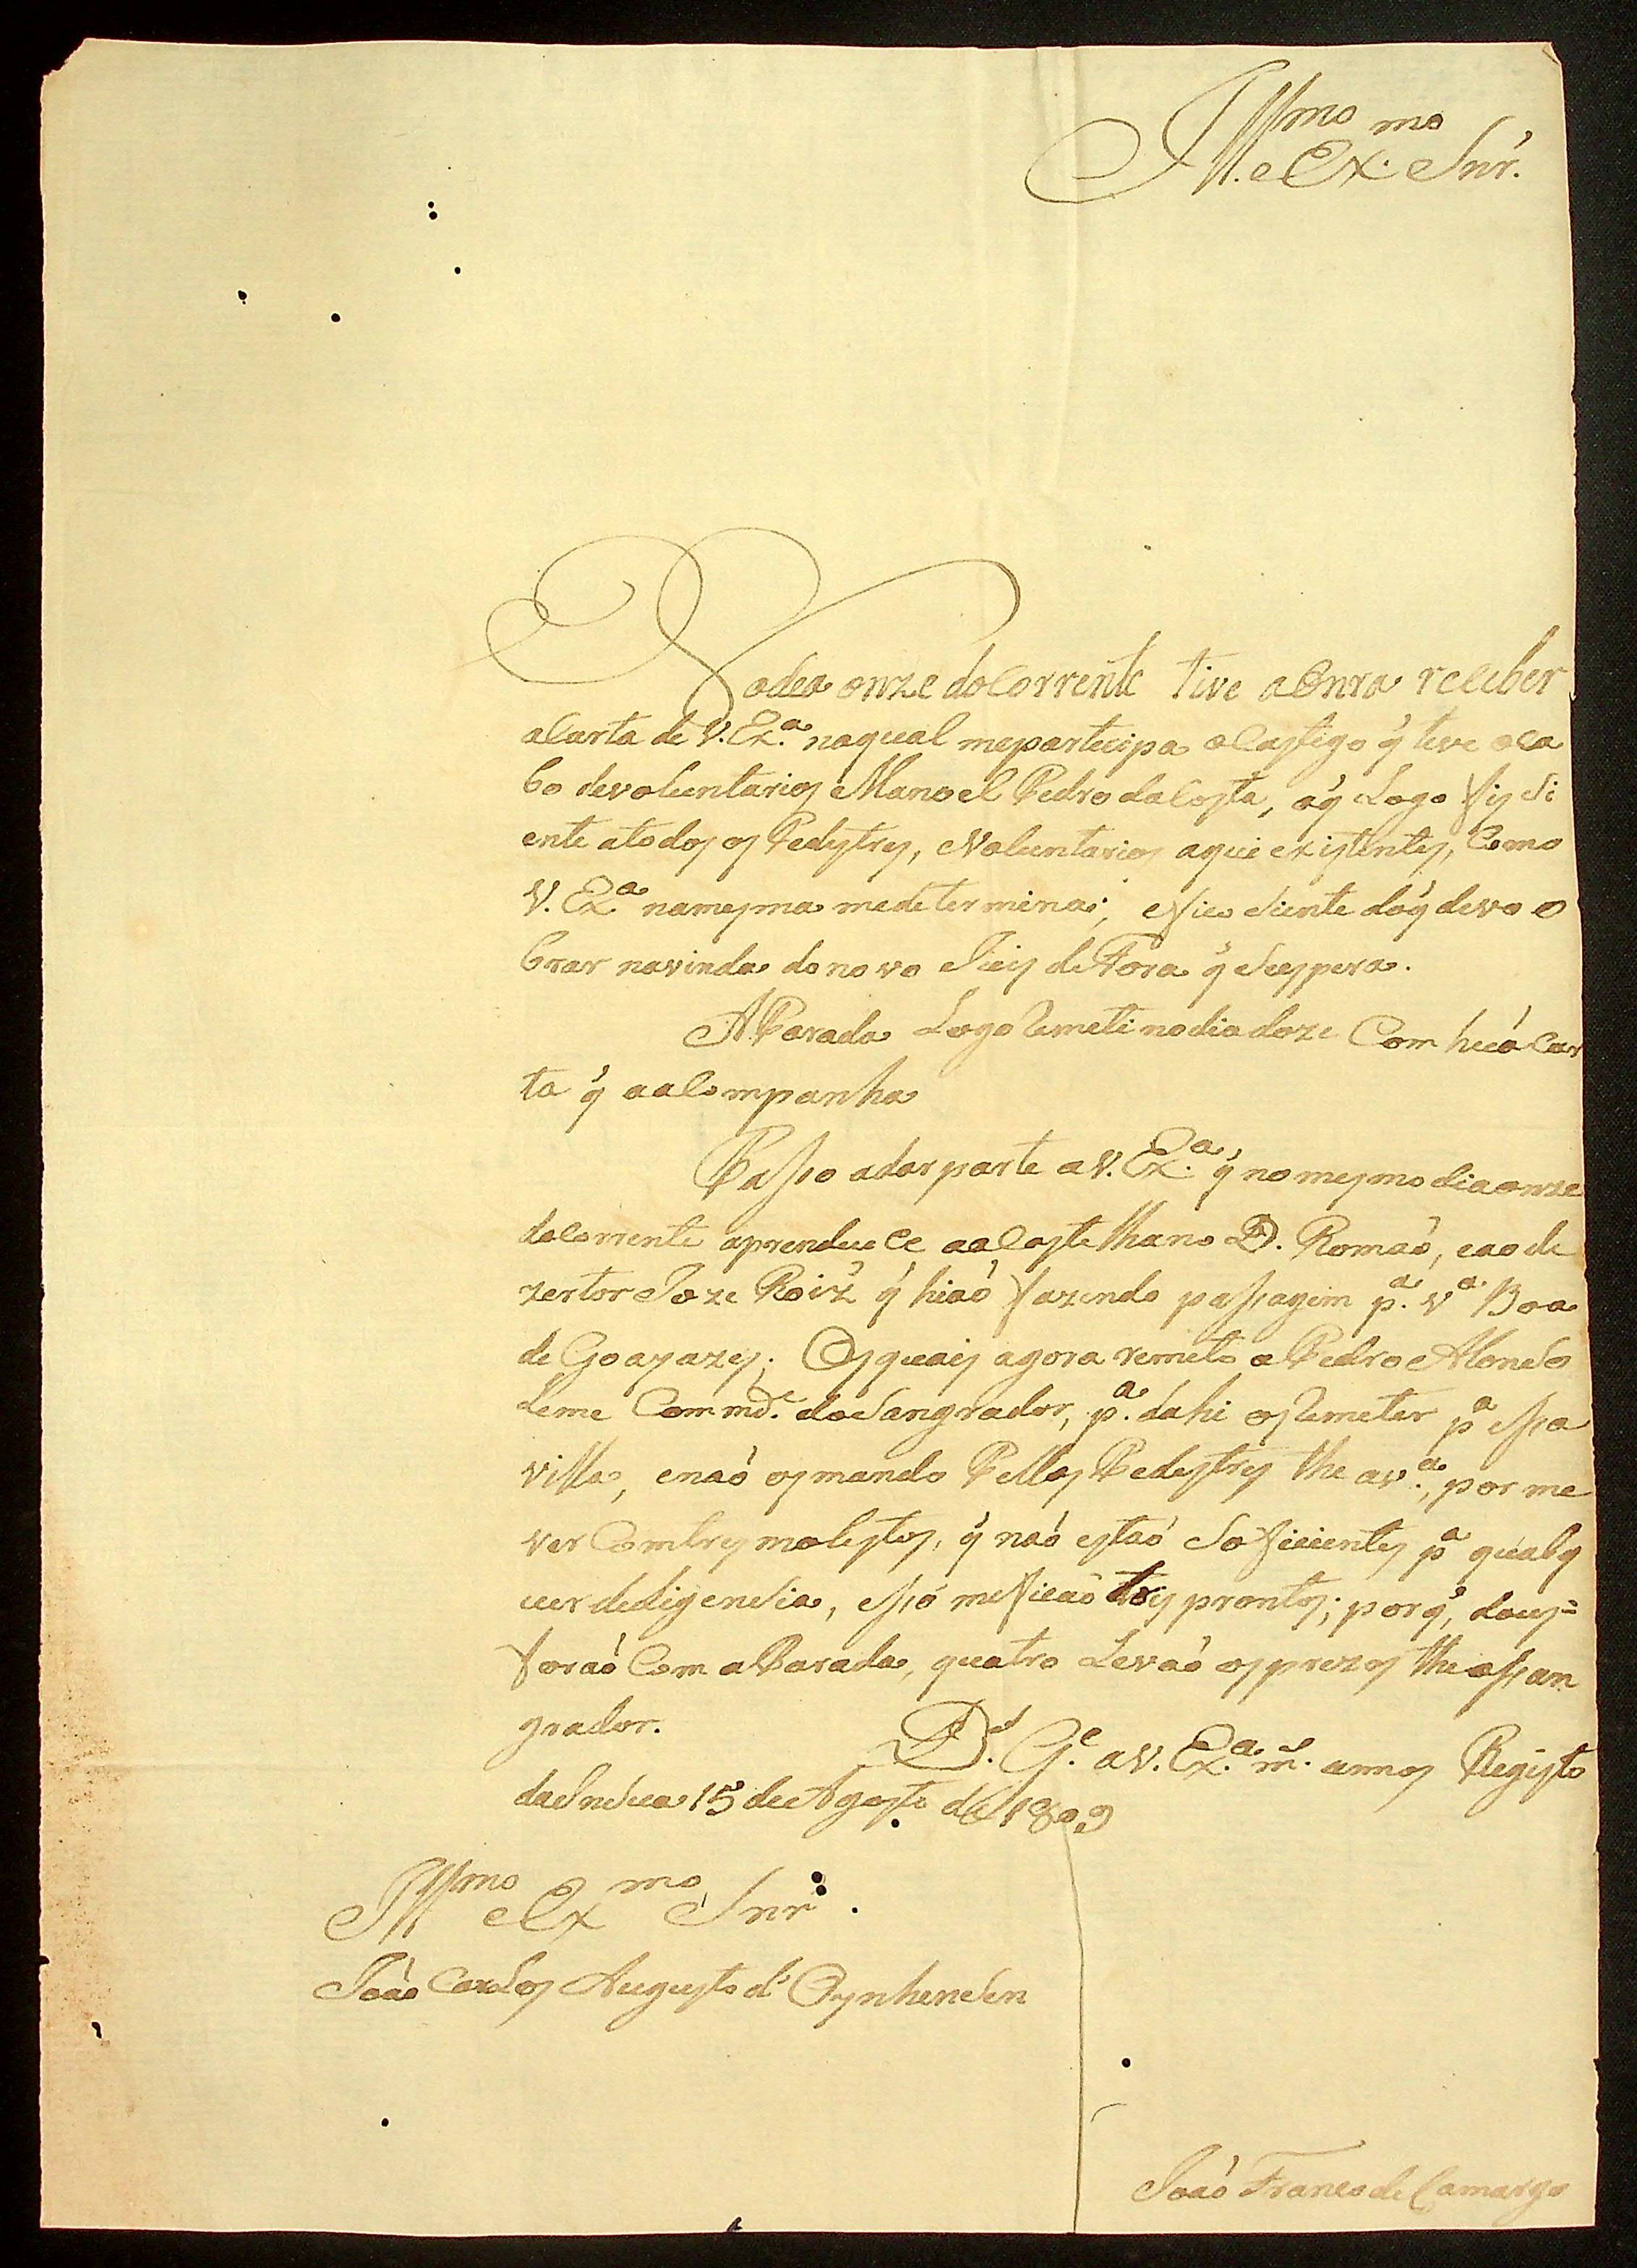 Ill.mo e Ex.mo Snr.
No dea onze do Corrente tive a Onra receber
a Carta de V. Ex.a na qual me partecipa o Castigo q̃ teve o Ca
bo de voluntarios Manoel Pedro da Costa, o q̃ Logo fis Si
ente a todos os Pedestres, e Voluntarios aqui existentes, Como
V. Ex.a na mesma me determina; e fico Siente do q̃ devo o
brar na vinda do novo Juis de Fora q̃ Se espera.
A Parada Logo Remeti no dia doze Com huã Car
ta q̃ a aCompanha
Passo a dar parte a V. Ex.a q̃ no mesmo dia onze
do Corrente aprenduce ao Castelhano D. Romaó, e ao de
zertor Joze Roiz̃ q̃ hiaó fazendo passagem p.a V.a Boa
de Goayazes; Os quais agora remeto a Pedro Alonso
Leme Comm.de do Sangrador, p.a dahi os Remeter p.a essa
villa, e naó os mando Pellos Pedestres the av.a, por me
ver Com tres molestos, q̃ naó estaó Soficientes p.a qualq
uer deligensia, e só me ficaó tres prontos; por q̃, dous=
foraó Com a Parada, quatro Levaó os prezos the o San
grador.
D.s G.e a V. Ex.a m.s annos Registo
da Insua 15 de Agosto de 1809
Ill.mo e Ex.mo Snr.
Joaó Carlos Augusto d' Oynhensen
Joaó Franco de Camargo